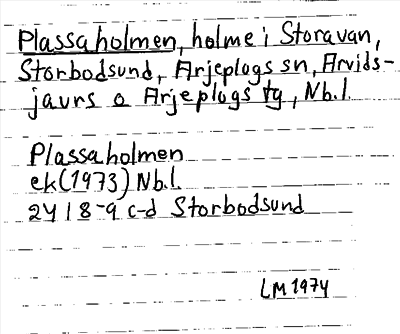 Plassaholmen, holme i Storavan,
Storbodsund, Arjeplogs sn, Arvids-
jaurs o Arjeplogs tg, Nb.l.
Plassaholmen
ek (1973) Nb.l.
24 I 8-9 c-d Storbodsund
LM 1974